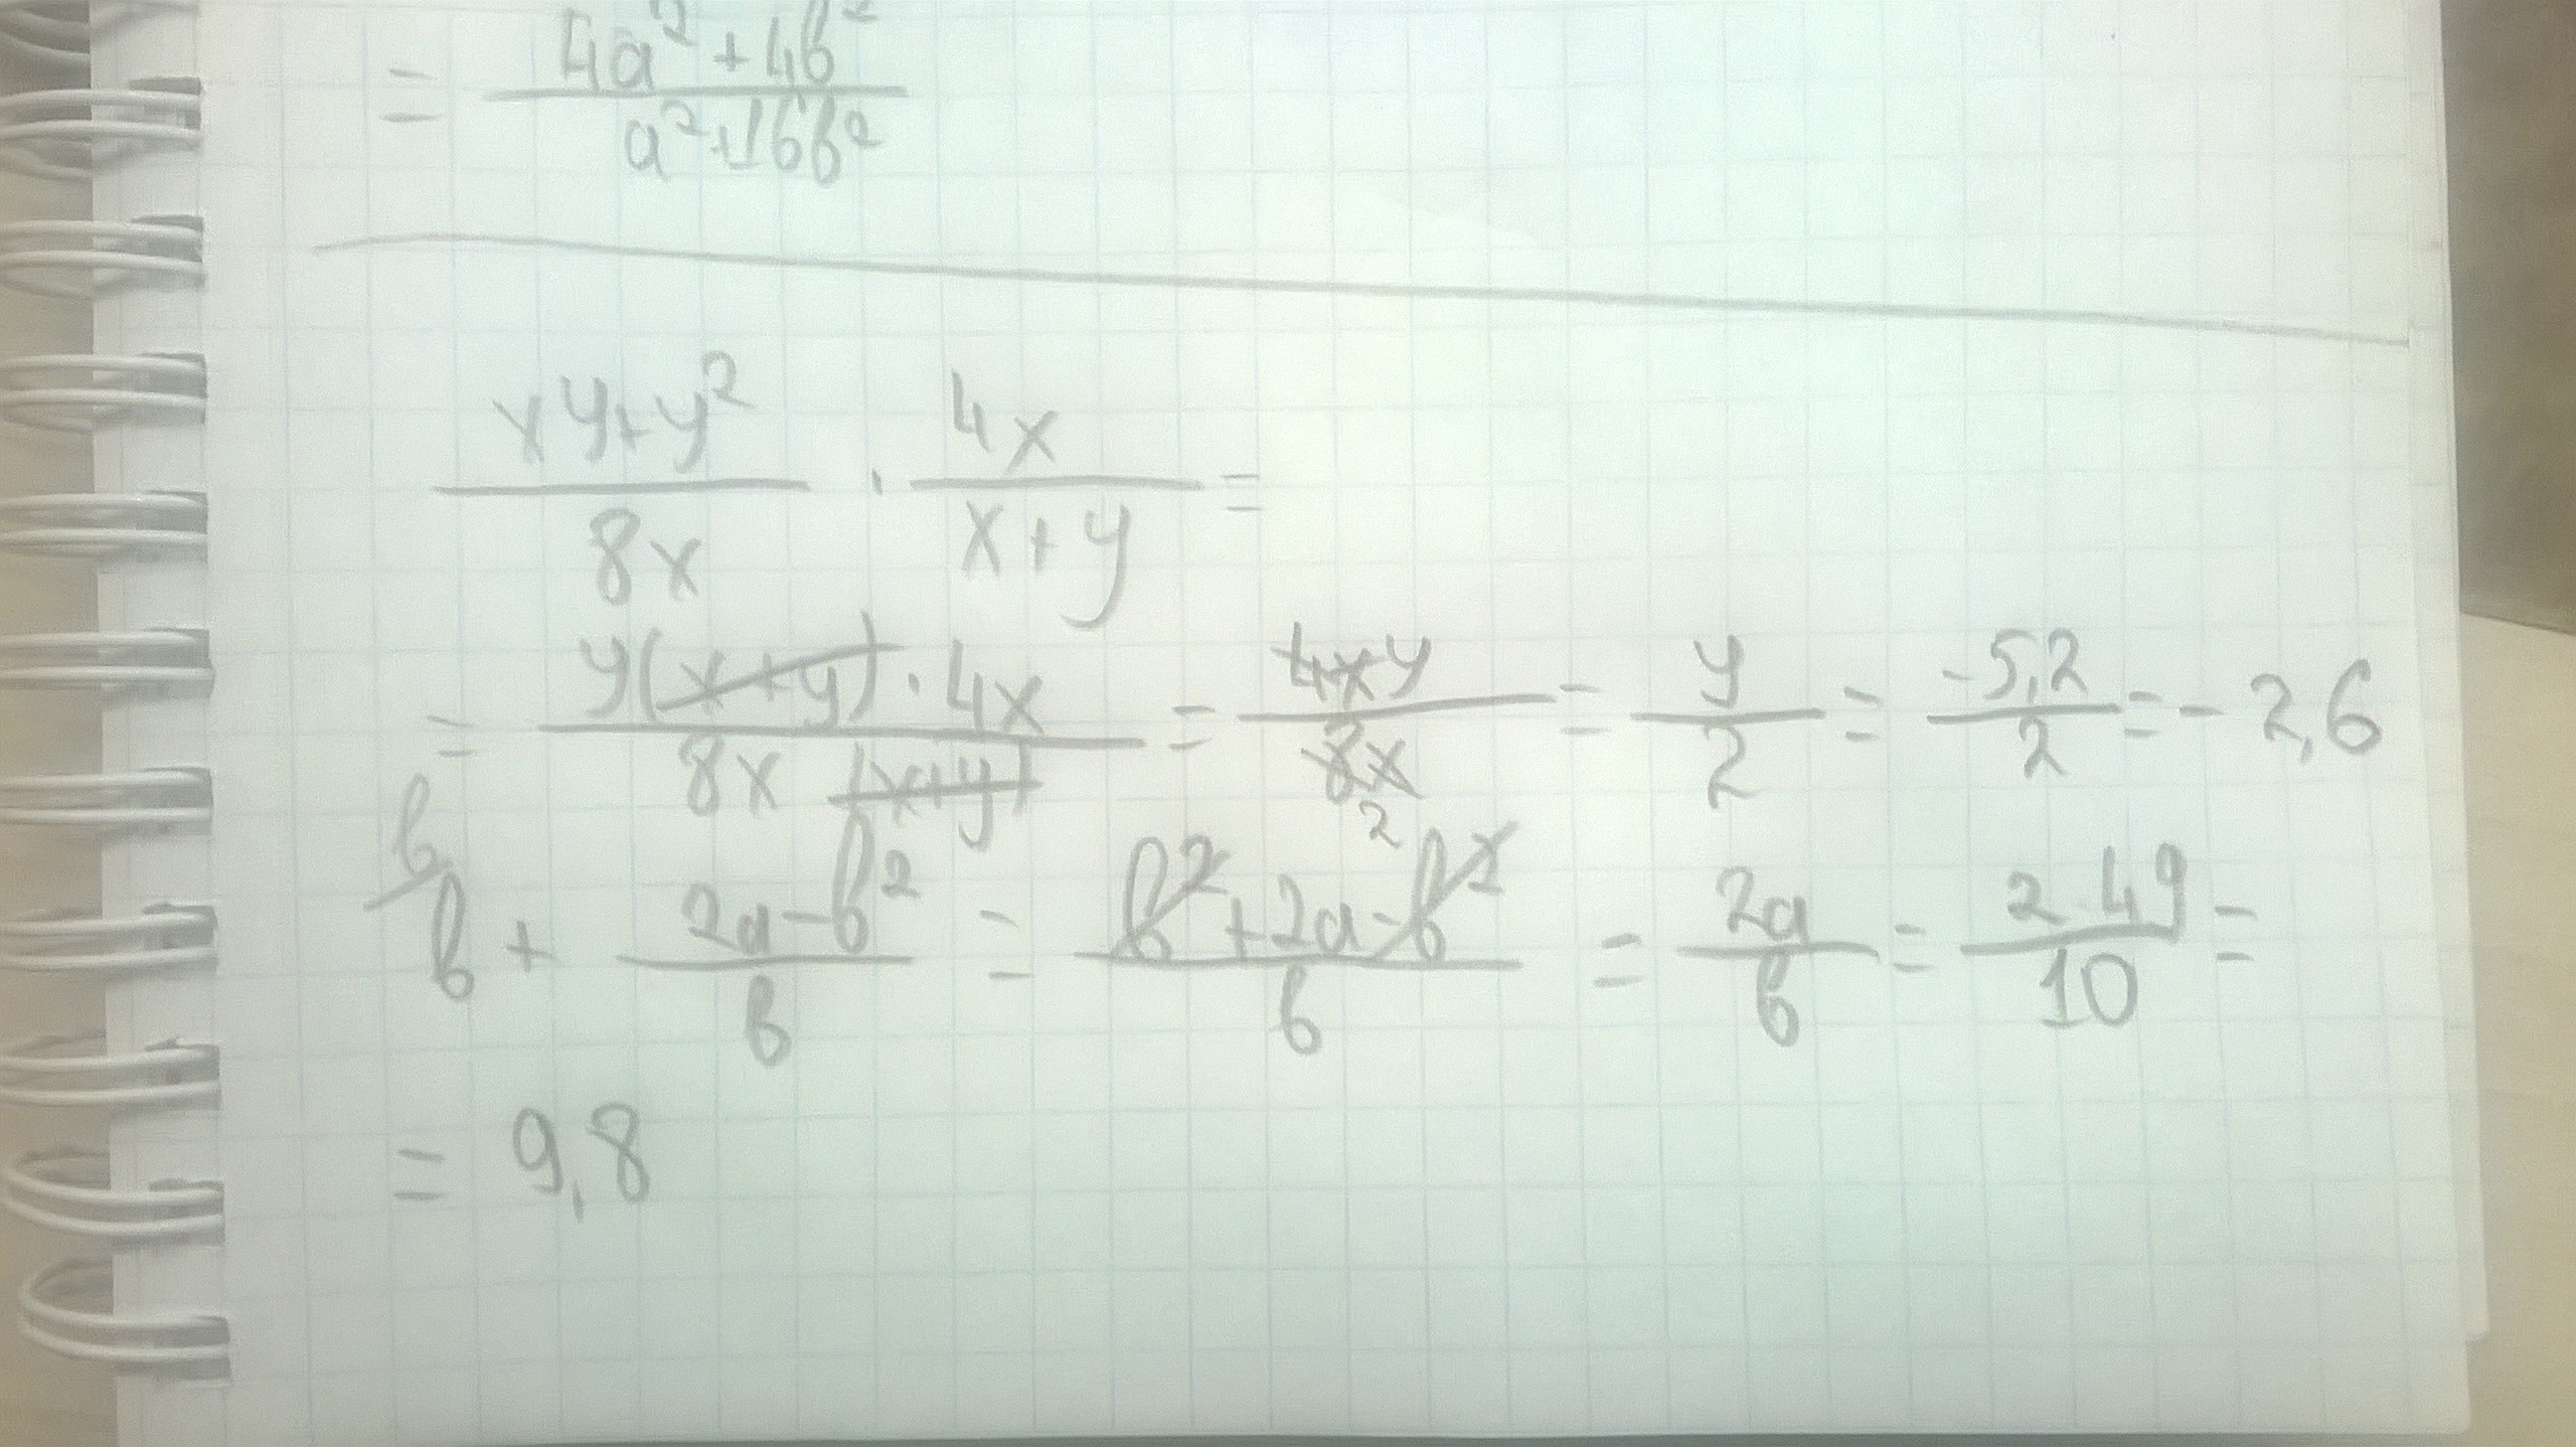 = (4a² + 4b²) / (a² + 16b²)
(xy + y²) / (8x) · (4x) / (x + y) =
= (y(x + y) · 4x) / (8x (x + y)) = (4xy) / (8x) 2 = y / 2 = (-5,2) / 2 = - 2,6
b
b + (2a - b²) / b = (b² + 2a - b²) / b = (2a) / b = (2 · 49) / 10 =
= 9,8